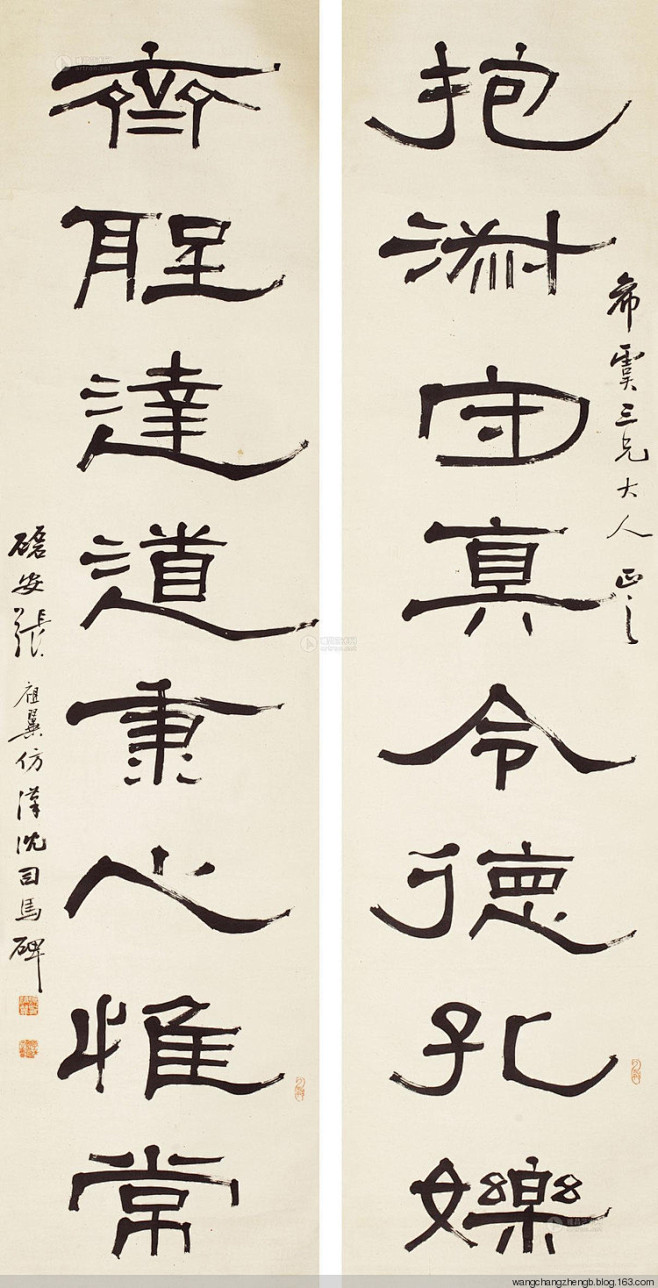 抱淑守真令德孔㜰
希虞三兄大人正之
齊聖達道秉心惟常
磊安張祖翼仿漢沈司馬碑
wangchangzhengb.blog.163.com